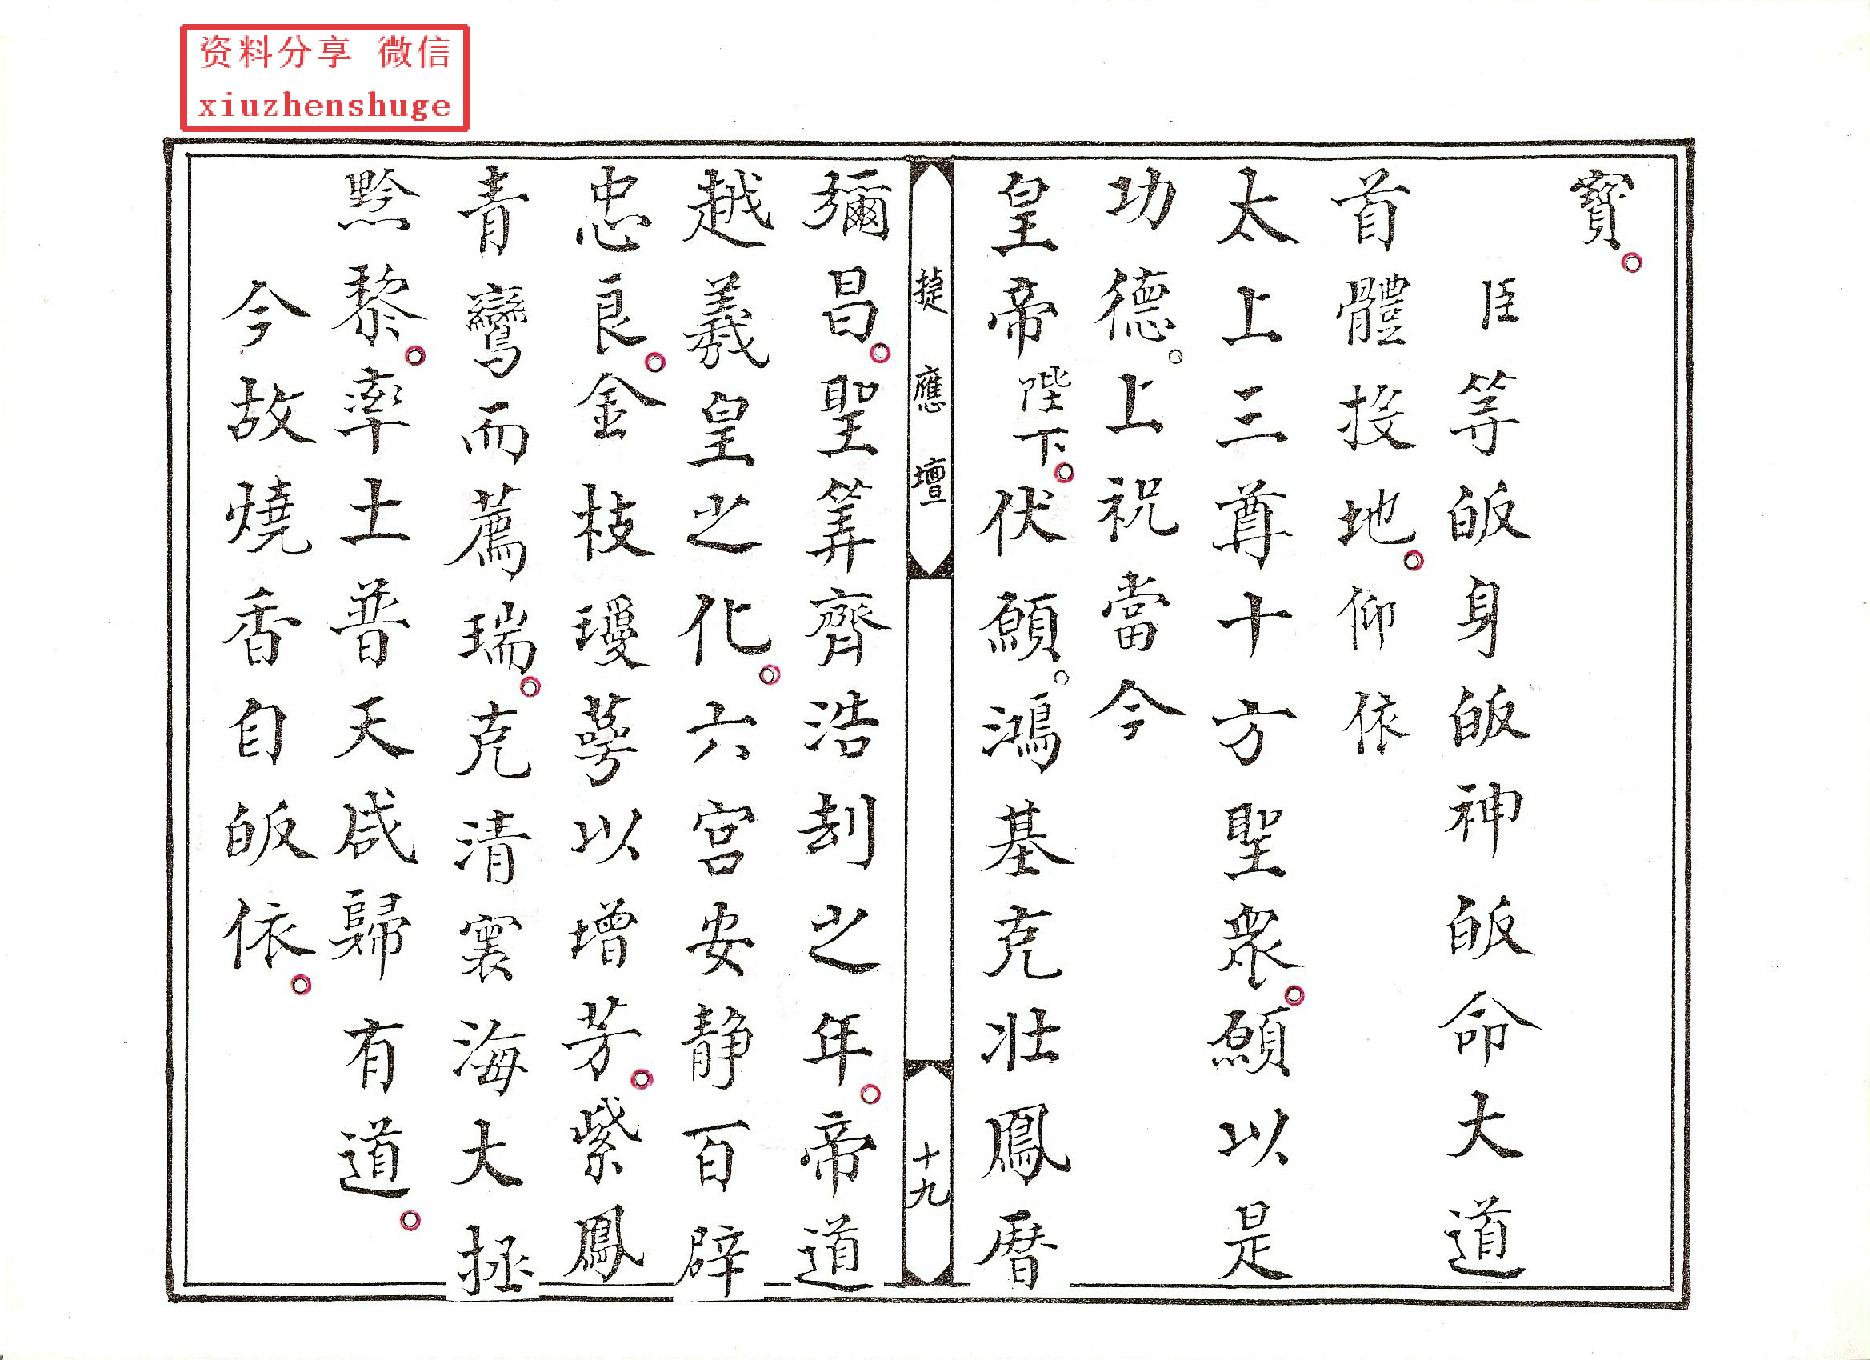 资料分享 微信
xiuzhenshuge
寶。
臣等皈身皈神皈命大道
首體投地。仰依
太上三尊十方聖衆。願以是
功德。上祝當今
皇帝陛下。伏願。鴻基克壯鳳曆
彌昌。聖筭齊浩刼之年。帝道
越羲皇之化。六宮安静百辟
忠良。金枝璦萼以增芳。紫鳳
青鸞而薦瑞。克清寰海大拯
黔黎。率土普天咸歸有道。
今故燒香自皈依。
捷應壇
十九